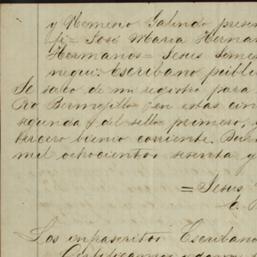 y Romero Galindo presen
fi= José Maria Hernan
Hermanos= Jesus Gomes
negui= Escribano público
Se saco de mi registro para
Pio Bermejillo en estas cin
segunda y del sello primero, y
tercero bienio corriente. Du
mil ochocientos sesenta y
= Jesus
Los infrascritos Escribano